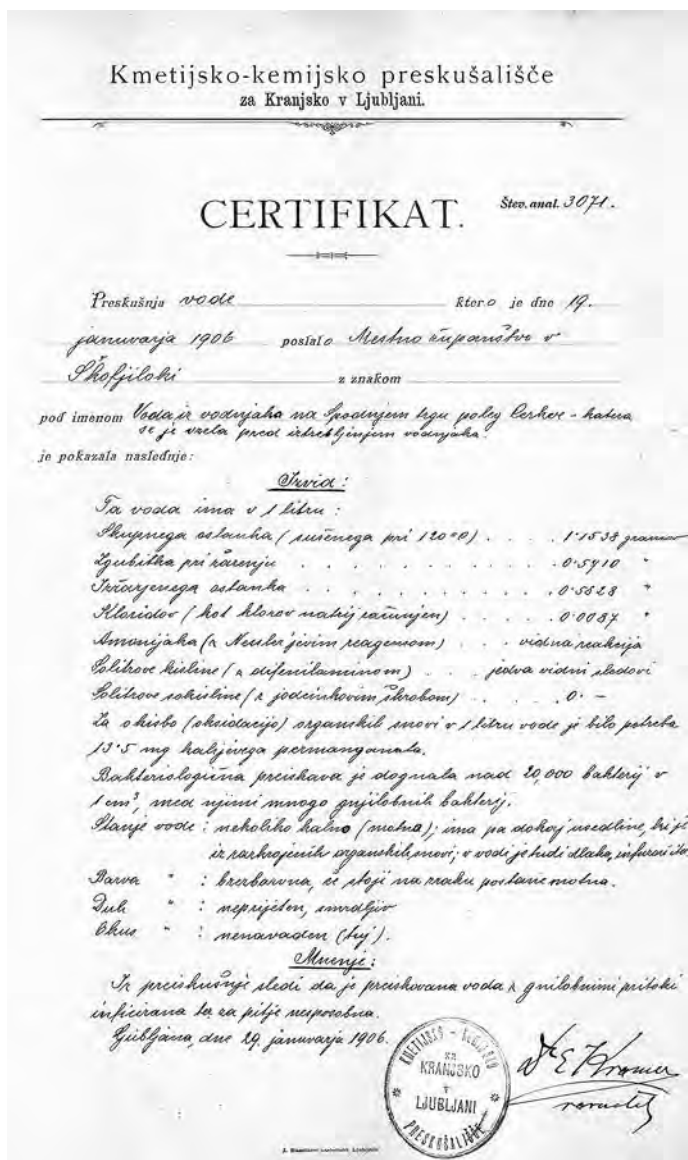 Kmetijsko-kemijsko preskušališče
za Kranjsko v Ljubljani.
CERTIFIKAT.
Štev. anal. 3071.
Preskušnja vode ktero je dne 19.
januvarja 1906 poslalo Mestno županstvo v
Škofjiloki z znakom
pod imenom Voda iz vodnjaka na Spodnjem trgu poleg Cerkve - katera
se je vzela pred iztrebljenjem vodnjaka.
je pokazala naslednje:
Izvid:
Ta voda ima v 1 litru:
Skupnega ostanka (sušenega pri 120°C) . . . . 1·1538 gramov
Zgubitka pri žarenju . . . . . . . . 0·5910 "
Izžarjenega ostanka . . . . . . . . 0·5628 "
Kloridov (kot klorov natrij računjen) . . . . 0·0087 "
Amonijaka (z Nessler'jevim reagensom) . . . vidna reakcija
Solitrove kisline (z difenilaminom) . . . jedva vidni sledovi
Solitrove sokisline (z jodcinkovim škrobom) . . . . 0. –
Za okisbo (oksidacijo) organskih snovi v 1 litru vode je bilo potreba
13·5 mg kalijevega permanganata.
Bakteriologična preiskava je dognala nad 20,000 bakterij v
1 cm³, med njimi mnogo gnjilobnih bakterij.
Stanje vode: nekoliko kalno (motna); ima pa dokaj usedline, ki je
iz razkrojenih organskih snovi; v vodi je tudi dlaka,
Barva " : brezbarvna, če stoji na zraku postane motna.
Duh " : neprijeten, smrdljiv
Okus " : nenavaden (tuj).
Mnenje:
Iz preiskušnje sledi da je preiskovana voda z gnilobnimi pritoki
inficirana ter za pitje nesposobna.
Ljubljana, dne 29. januvarja 1906.
KMETIJSKO-KEMIJSKO
ZA
KRANJSKO
V
LJUBLJANI
PRESKUŠALIŠČE
Dr E Kramer
ravnatelj